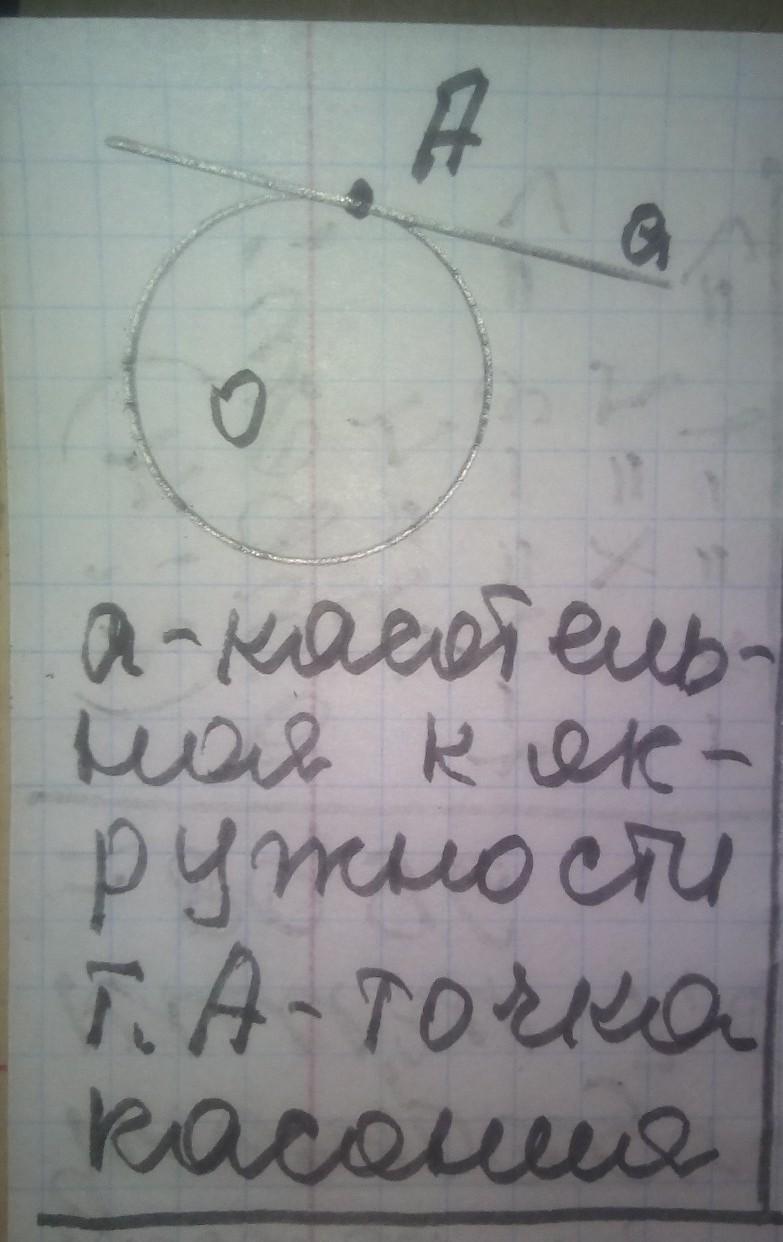 A
a
O
а-касатель-
ная к як-
ружности
т. А-точка
касания